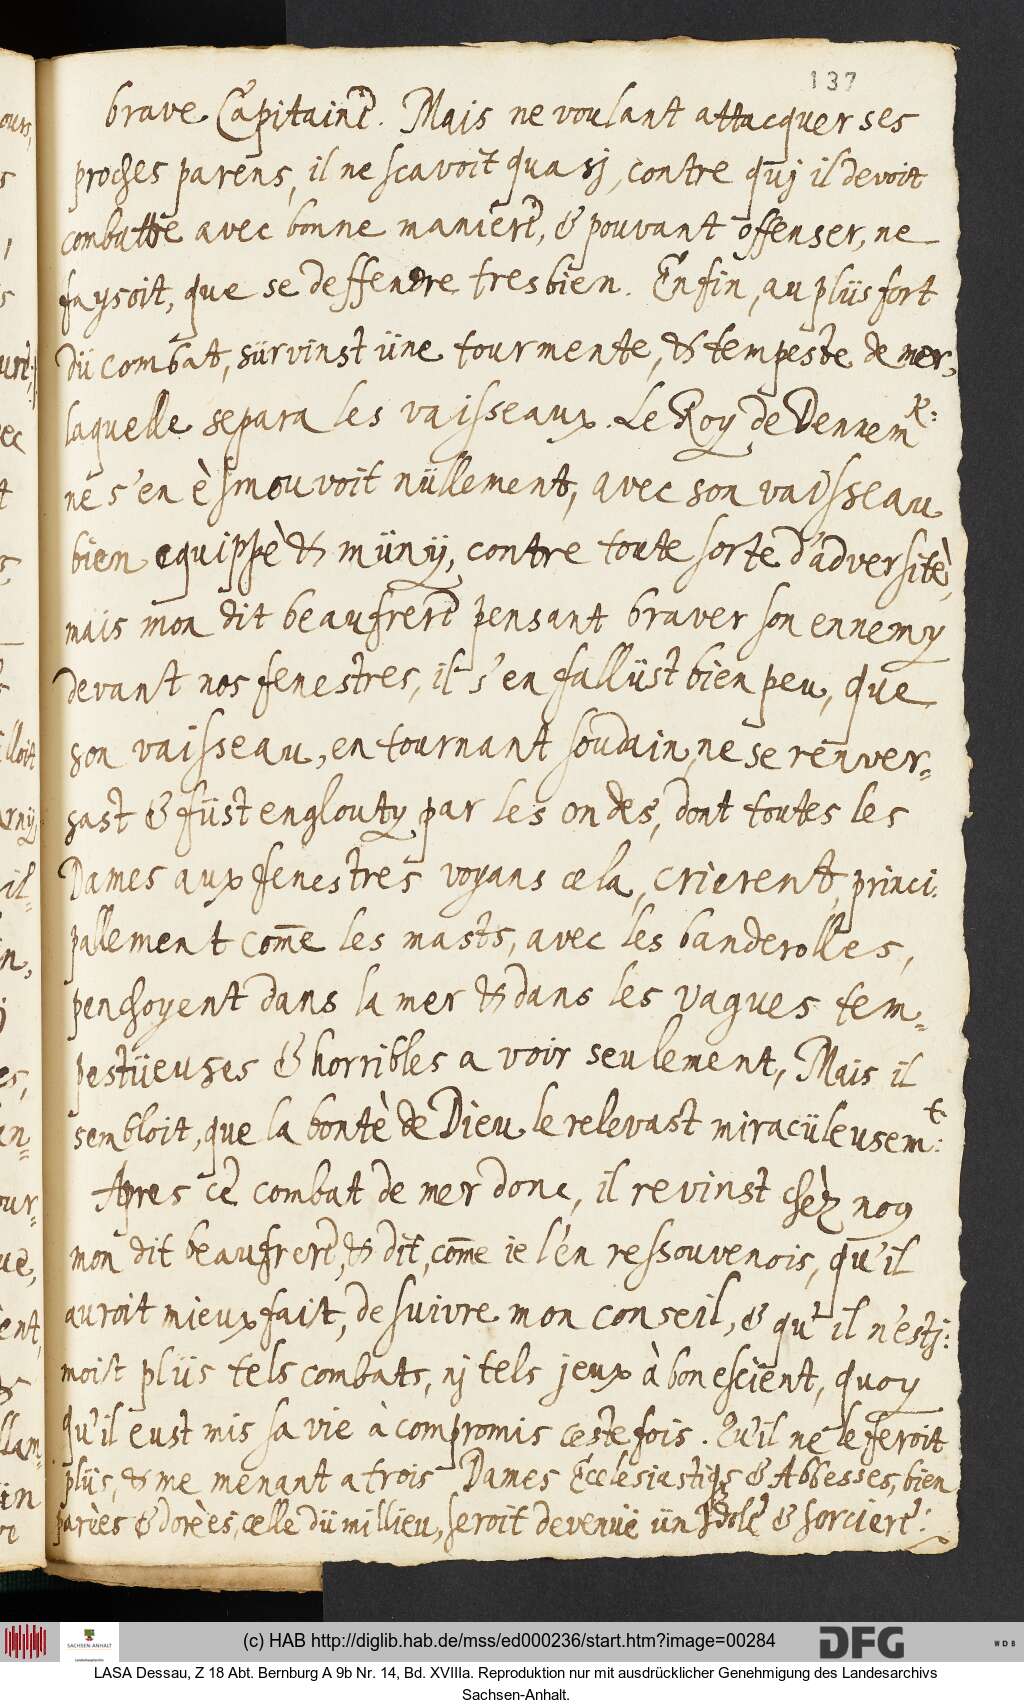 137
brave Capitaine. Mais ne voulant attacquer ses
proches parens, il ne scavoit quasj, contre quj il devoit
combattre avec bonne maniere, & pouvant offenser, ne
faysoit, que se deffendre tresbien. Enfin, au plüs fort
dü combat, sürvinst üne tourmente, & tempeste de mer,
laquelle separa les vaisseaux. Le Roy de Dennemk:
ne s'en èsmouvoit nüllement, avec son vaisseau
bien equippè & münÿ, contre toute sorte d'adversitè,
mais mon dit beaufrere pensant braver son ennemy
devant nos fenestres, il s'en fallüst bien peu, que
son vaisseau, en tournant soudain, ne se renver-
sast & füst englouty par les ondes, dont toutes les
Dames aux fenestres voyans cela, crierent, princi-
pallement com̅e les masts, avec les banderolles,
penchoyent dans la mer & dans les vagues tem-
pestüeuses & horribles a voir seulement, Mais il
sembloit, que la bontè de Dieu le relevast miracüleusemt:
Apres ce combat de mer donc, il revinst chèz nous
mon dit beaufrere, & dit, com̅e ie l'en ressouvenois, qu'il
auroit mieux fait, de suivre mon conseil, & qu'il n'estj-
moist plüs tels combats, nj tels jeux à bon escient, quoy
qu'il eust mis sa vie à compromis ceste fois. Qu'il ne le feroit
plüs, & me menant a trois Dames Ecclesiastiqs & Abbesses, bien
parèes & dorèes, celle dü millieu, seroit devenüe ün Idole & sorciere:
(c) HAB http://diglib.hab.de/mss/ed000236/start.htm?image=00284
SACHSEN-ANHALT
DFG
WDB
LASA Dessau, Z 18 Abt. Bernburg A 9b Nr. 14, Bd. XVIIIa. Reproduktion nur mit ausdrücklicher Genehmigung des Landesarchivs
Sachsen-Anhalt.